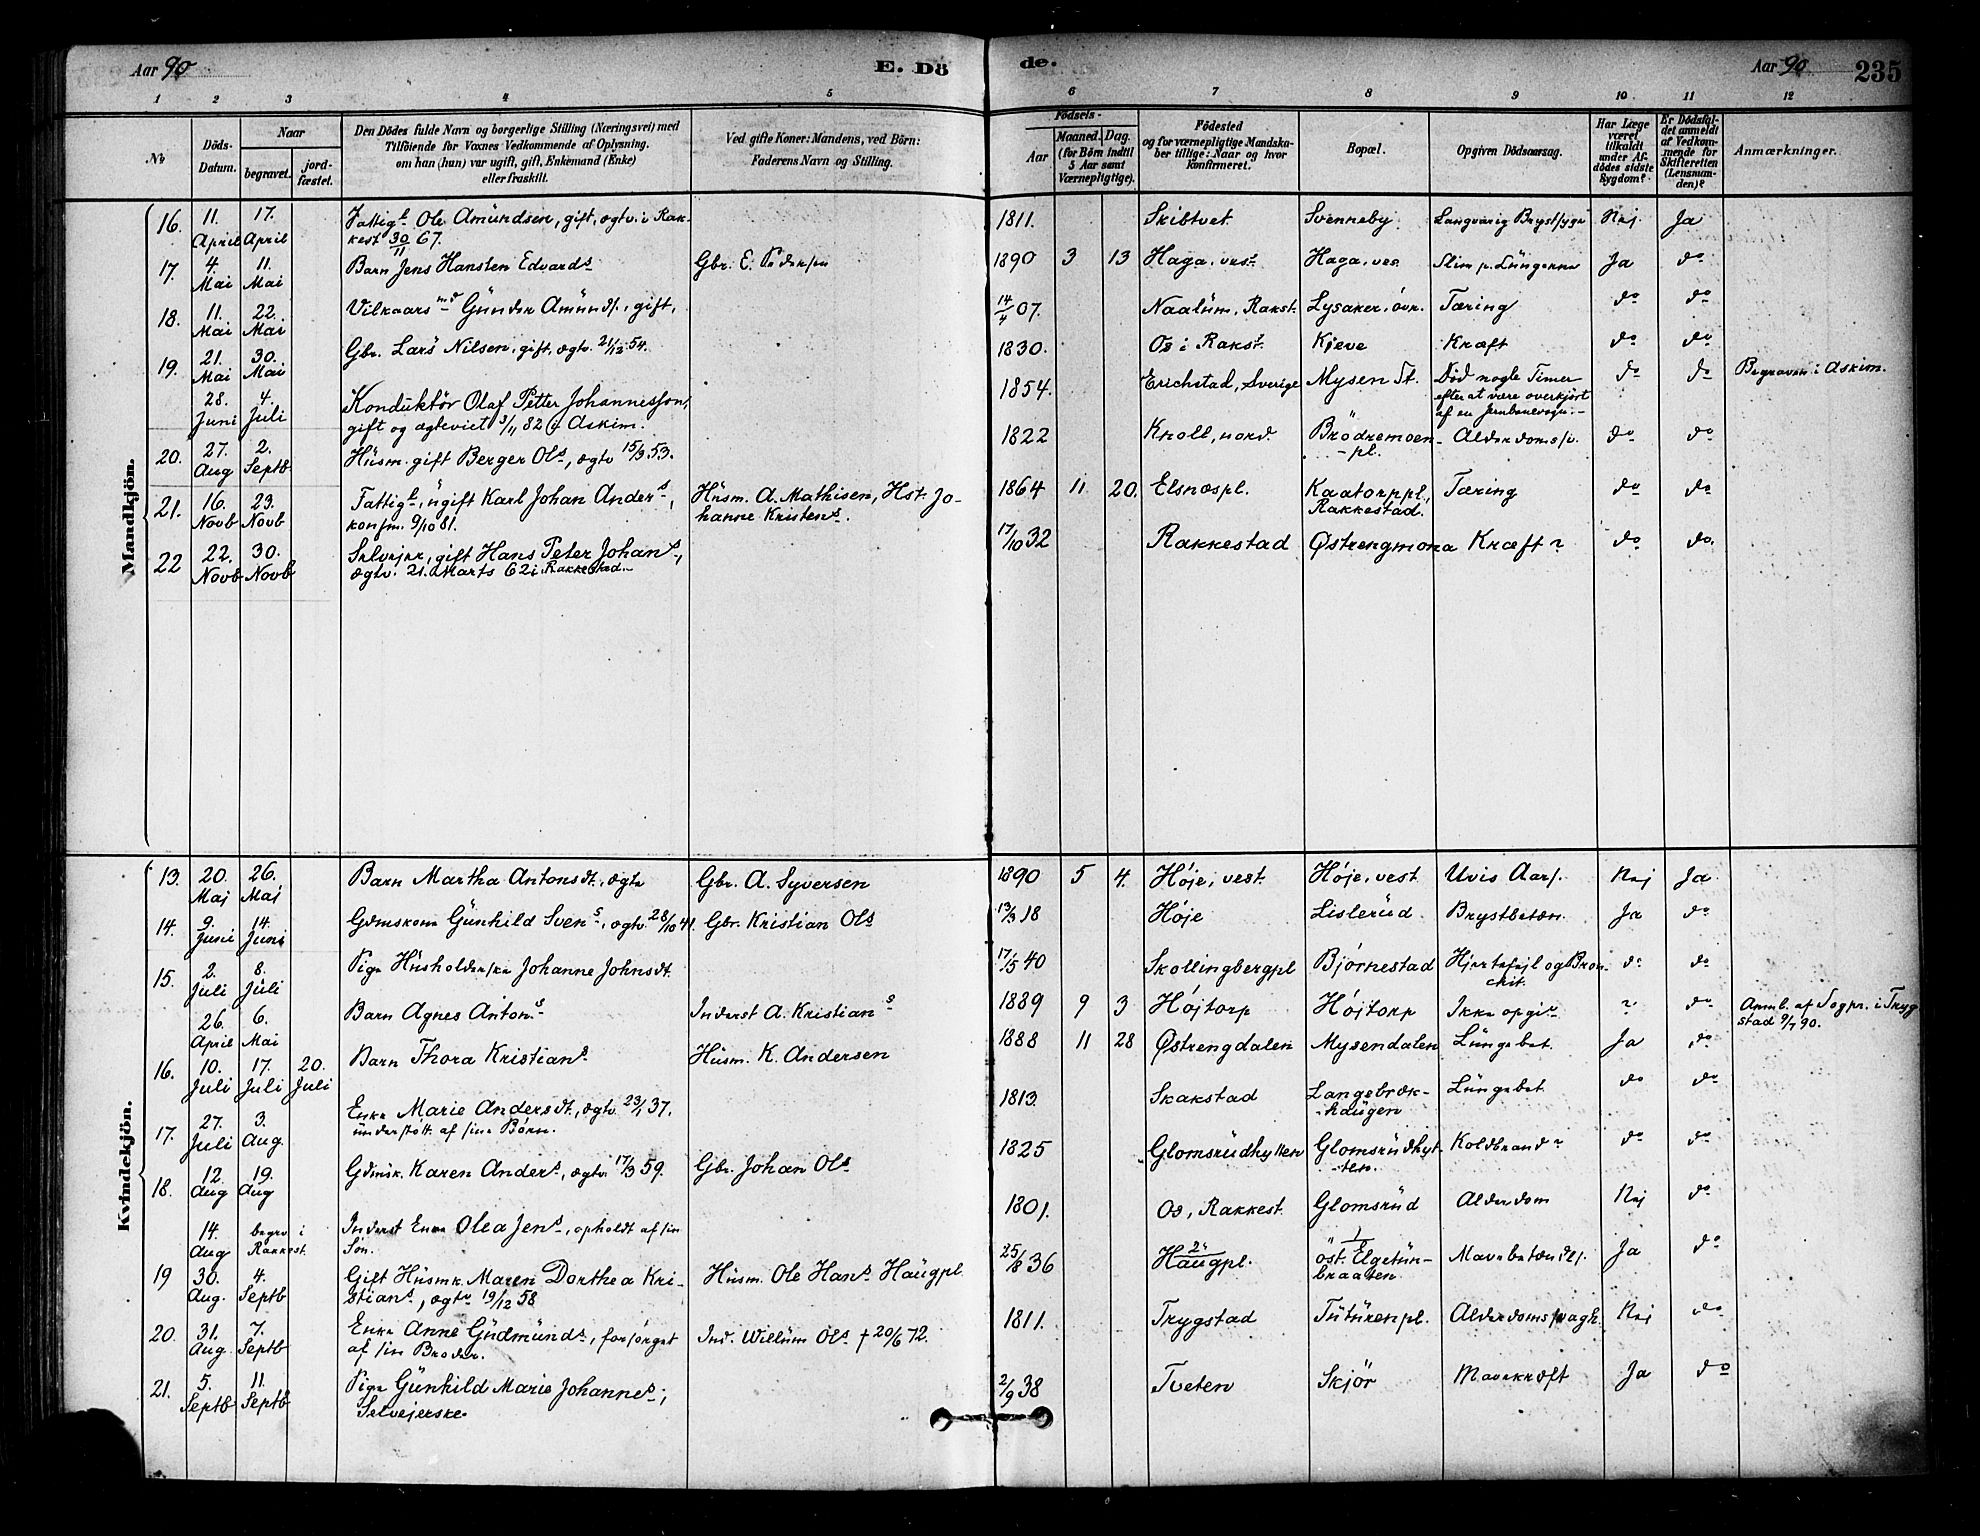 Aar 90
E. Dö
de.
Aar 90
235
1 2 3 4 5 6 7 8 9 10 11 12
No
Döds-
Datum.
Naar
begravet.
jord-
fæstet.
Den Dödes fulde Navn og borgerlige Stilling (Næringsvei) med
Tilföiende for Voxnes Vedkommende af Oplysning,
om han (hun) var ugift, gift, Enkemand (Enke)
eller fraskilt.
Ved gifte Koner: Mandens, ved Börn:
Faderens Navn og Stilling.
Födsels-
Aar
Maaned.
Dag.
(for Börn indtil
5 Aar samt
Værnepligtige).
Födested
og for værnepligtige Mandska-
ber tillige: Naar og hvor
konfirmeret.
Bopæl.
Opgiven Dödsaarsag.
Har Læge
været
tilkaldt
under Af-
dödes sidste
Sygdom?
Er Dödsfal-
det anmeldt
af Vedkom-
mende for
Skifteretten
(Lensman-
den)?
Anmærkninger.
Mandkjön.
16. 11. April 17. April Fattigl. Ole Amündsen, gift, ægtv. i Rak-
kest 30/11 67. 1811. Skibtvet Svenneby Langvarig Brystsyge Nej Ja
17. 4. Mai 11. Mai Barn Jens Hansten Edvards Gbr. E. Pedersen 1890 3 13 Haga, vest Haga, ves Slim p. Lüngerne Ja do
18. 11. Mai 22. Mai Vilkaarsmd Günder Amünds, gift, 14/4 07. Naalüm, Rakst. Lysaker, övr. Tæring do do
19. 21. Mai 30. Mai Gbr. Lars Nilsen, gift, ægtv. 21/12 54. 1830. Os i Rakst. Kjeve Kræft do do
28. Juni 4. Juli Konduktör Olaf Petter Johannesson,
gift og ægteviet 3/11 82 i Askim. 1854. Erichstad, Sverige Mysen St. Död nogle Timer
efter at være overkjört
af en Jernbanevogn.- do do Begraven i Askim.
20. 27. Aug 2. Septb Hüsm. gift Berger Ols, ægtv 15/3 53. 1822 Knoll, nord. Brödremoen-
-pl. Alderdomssv. do do
21. 16. Novb 23. Novb Fattigl., ügift Karl Johan Anders,
konfm. 9/10 81. Hüsm. A. Mathisen, Hst. Jo-
hanne Kristens. 1864 11 20. Elsnæspl. Kaatorppl.,
Rakkestad. Tæring do do
22 22. Novb 30. Novb Selvejer, gift Hans Peter Johans,
ægtv. 21. Marts 62 i Rakkestad.- 17/10 32 Rakkestad Østrengmona Kræft? do do.
Kvindekjön.
13. 20. Maj 26. Maj Barn Martha Antonsdt., ægte Gbr. A. Syversen 1890 5 4. Høje, vest. Høje, vest Uvis Aars. Nej Ja
14. 9. Juni 14. Juni Gdmskone Günhild Svens, ægtv. 28/10 41. Gbr. Kristian Ols 13/3 18 Høje Lislerüd Brystbetæn. Ja do
15. 2. Juli 8. Juli Pige Hüsholderske Johanne Johnsdt. 17/5 40 Skollingbergpl Bjørnestad Hjertefejl og Bron-
chit. do do
26. April 6. Mai Barn Agnes Antons Inderst A. Kristians 1889 9 3 Højtorp Højtorp Ikke opgis ? do Anmb. af Sogpr. i Tryg
stad 9/7 90.
16. 10. Juli 17. Juli 20. Juli Barn Thora Kristians Hüsm. K. Andersen 1888 11 28 Østrengdalen Mysendalen Lüngebet. Ja do
17. 27. Juli 3. Aug. Enke Marie Andersdt., ægtv. 23/1 37.
ünderstött. af sine Børn. 1813. Skakstad Langebræk-
-haügen Lüngebet do do
18. 12. Aug 19. Aug Gdmsk. Karen Anders, ægtv. 17/3 59. Gbr. Johan Ols 1825 Glomsrüdhytten Glomsrüdhyt-
ten. Koldbrand? do do
14. Aug begrav i Rakkest. Inderst Enke Olea Jens, opholdt af sin
Søn. 1801. Os, Rakkest. Glomsrüd Alderdom Nej do
19 30. Aug. 4. Septb Gift Hüsmk. Maren Dorthea Kri-
stians, ægtv 19/12 58 Hüsm. Ole Hans Haügpl. 25/8 36 Haügpl. öst. Elgetün-
braaten Mavebetændls. Ja do
20. 31. Aug. 7. Septb Enke Anne Güdmünds, forsørget
af sin Broder. Ind. Willüm Ols † 20/6 72. 1811. Trygstad Tütürenpl. Alderdomssvagh. Nej do
21. 5. Septb 11. Septb Pige Günhild Marie Johannes;
Selvejerske. 2/9 38 Tveten Skjör Mavekræft Ja do